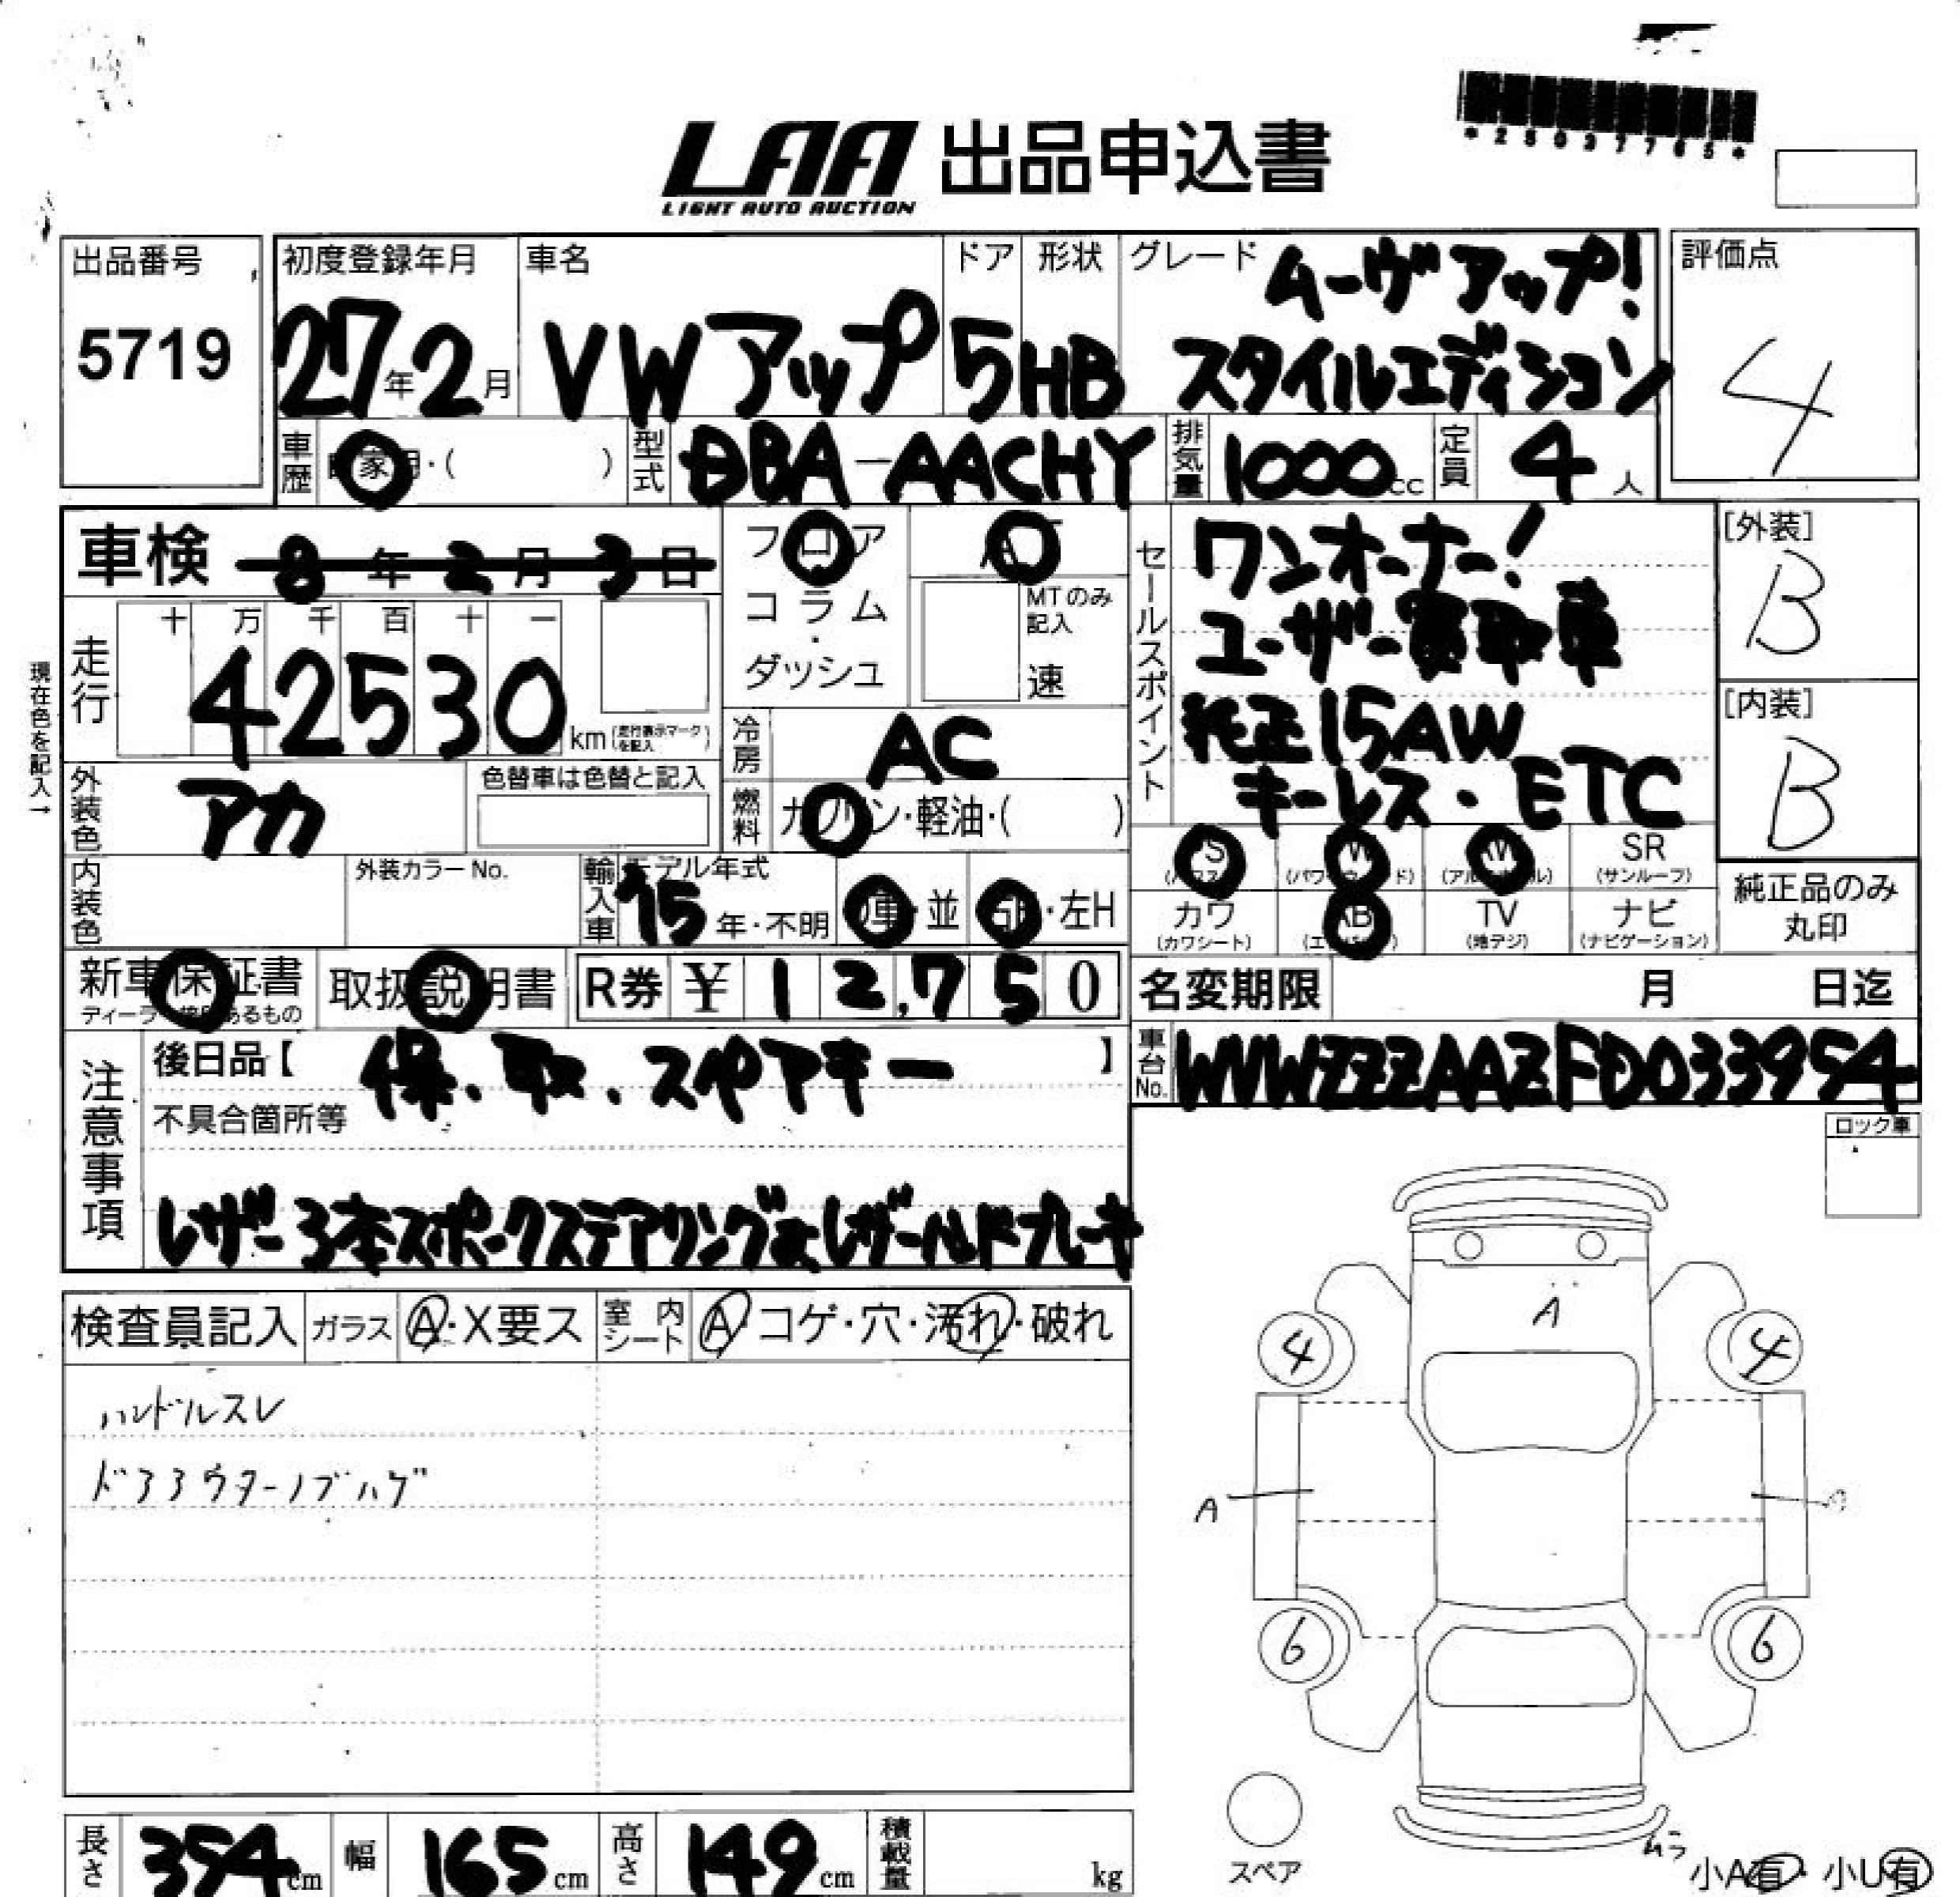 *25037765*
LAA 出品申込書
LIGHT AUTO AUCTION
出品番号
5719
初度登録年月
27年2月
車名
VWアップ
ドア
5
形状
HB
グレード
ムーヴアップ!
スタイルエディション
評価点
4
車歴 自家用・( )
型式 DBA-AACHY
排気量 1000cc
定員 4人
車検 8年2月3日
フロア
コラム
・
ダッシュ
AT
MTのみ
記入
速
セールスポイント
ワンオーナー!
ユーザー買取車
純正15AW
キーレス・ETC
[外装]
B
[内装]
B
現在色を記入→
走行
十 万 千 百 十 一
42530 km (走行表示マークを記入)
冷房 AC
外装色 アカ
色替車は色替と記入
燃料 ガソリン・軽油・( )
内装色
外装カラーNo.
輸入車
モデル年式
15年・不明
D車・並
右H・左H
PS
(パワステ)
PW
(パワーウインド)
AW
(アルミホイル)
SR
(サンルーフ)
カワ
(カワシート)
AB
(エアバック)
TV
(地デジ)
ナビ
(ナビゲーション)
純正品のみ
丸印
新車保証書
取扱説明書
R券 ¥ 12,750
名変期限 月 日迄
注意事項
後日品【 保.取.スペアキー 】
不具合箇所等
レザー3本スポークステアリング&レザーハンドブレーキ
車台No. WVWZZZAAZFD033954
ロック車
検査員記入
ガラス A・X要ス
室内シート A コゲ・穴・汚れ・破れ
ハンドルスレ
ドアアウターノブハゲ
A
4
4
A
6
6
スペア
小A有・小U有
長さ 354cm
幅 165cm
高さ 149cm
積載量 kg